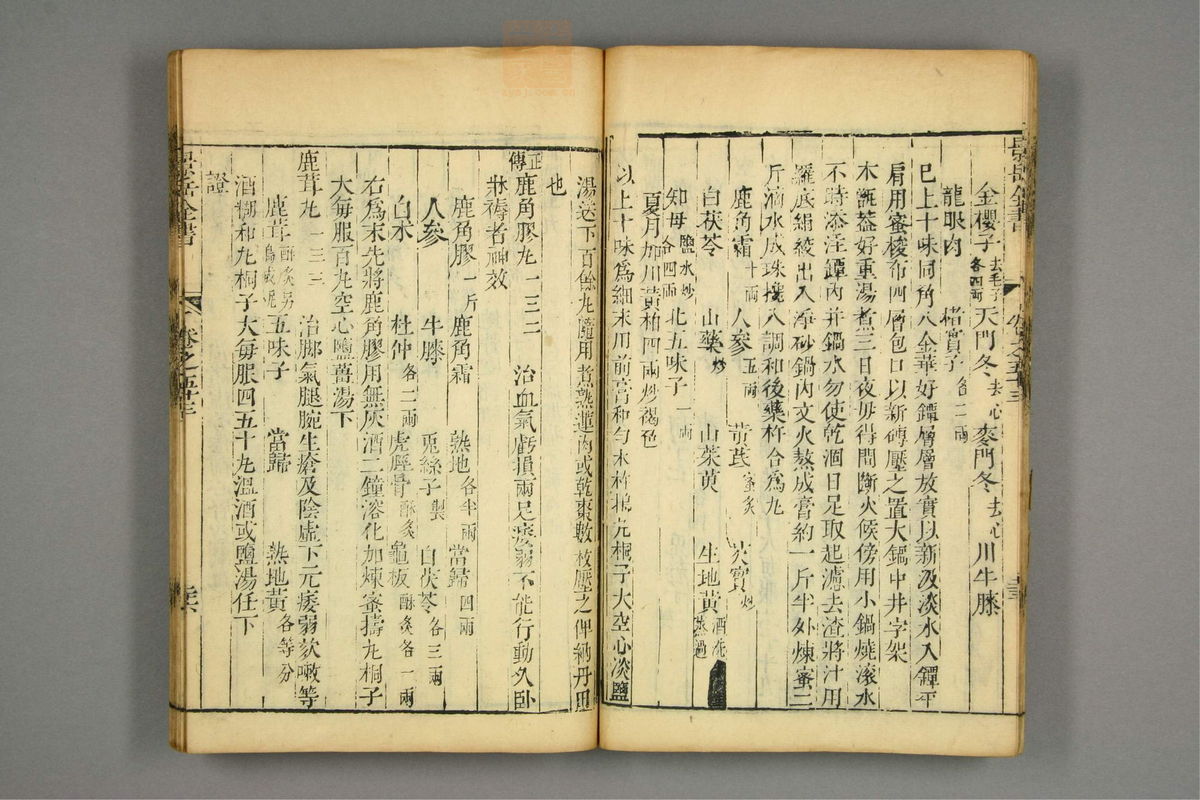 金櫻子去毛子各四兩天門冬去心麥門冬去心川牛膝
龍眼肉楮實子各二兩
已上十味同角入金華好罈層層放實以新汲淡水入罈平
肩用蜜梭布四層包口以新磚壓之置大鍋中井字架
木甑蓋好重湯煮三日夜毋得間斷火候傍用小鍋燒滾水
不時添注罈內并鍋水勿使乾涸日足取起濾去渣將汁用
羅底絹絞出入淨砂鍋內文火熬成膏約一斤半外煉蜜二
斤滴水成珠攙入調和後藥杵合爲丸
鹿角霜十兩人參五兩黃芪蜜炙芡實炒
白茯苓山藥炒山茱萸生地黃酒洗蒸過
知母鹽水炒各四兩北五味子一兩
夏月加川黃柏四兩炒褐色
以上十味爲細末用前膏和勻木杵搗丸桐子大空心淡鹽
湯送下百餘丸隨用煮熟蓮肉或乾棗數枚壓之俾納丹田
也
正傳鹿角膠丸一三二治血氣虧損兩足痿弱不能行動久臥
牀褥者神效
鹿角膠一斤鹿角霜熟地各半兩當歸四兩
人參牛膝兎絲子製白茯苓各三兩
白朮杜仲各二兩虎脛骨酥炙龜板酥炙各一兩
右爲末先將鹿角膠用無灰酒二鐘溶化加煉蜜擣丸桐子
大每服百丸空心鹽薑湯下
鹿茸丸一三三治腳氣腿腕生瘡及陰虛下元痿弱欬嗽等
證
鹿茸酥炙五味子當歸熟地黃各等分
酒糊和丸桐子大每服四五十丸溫酒或鹽湯任下
景岳全書
卷之五十三